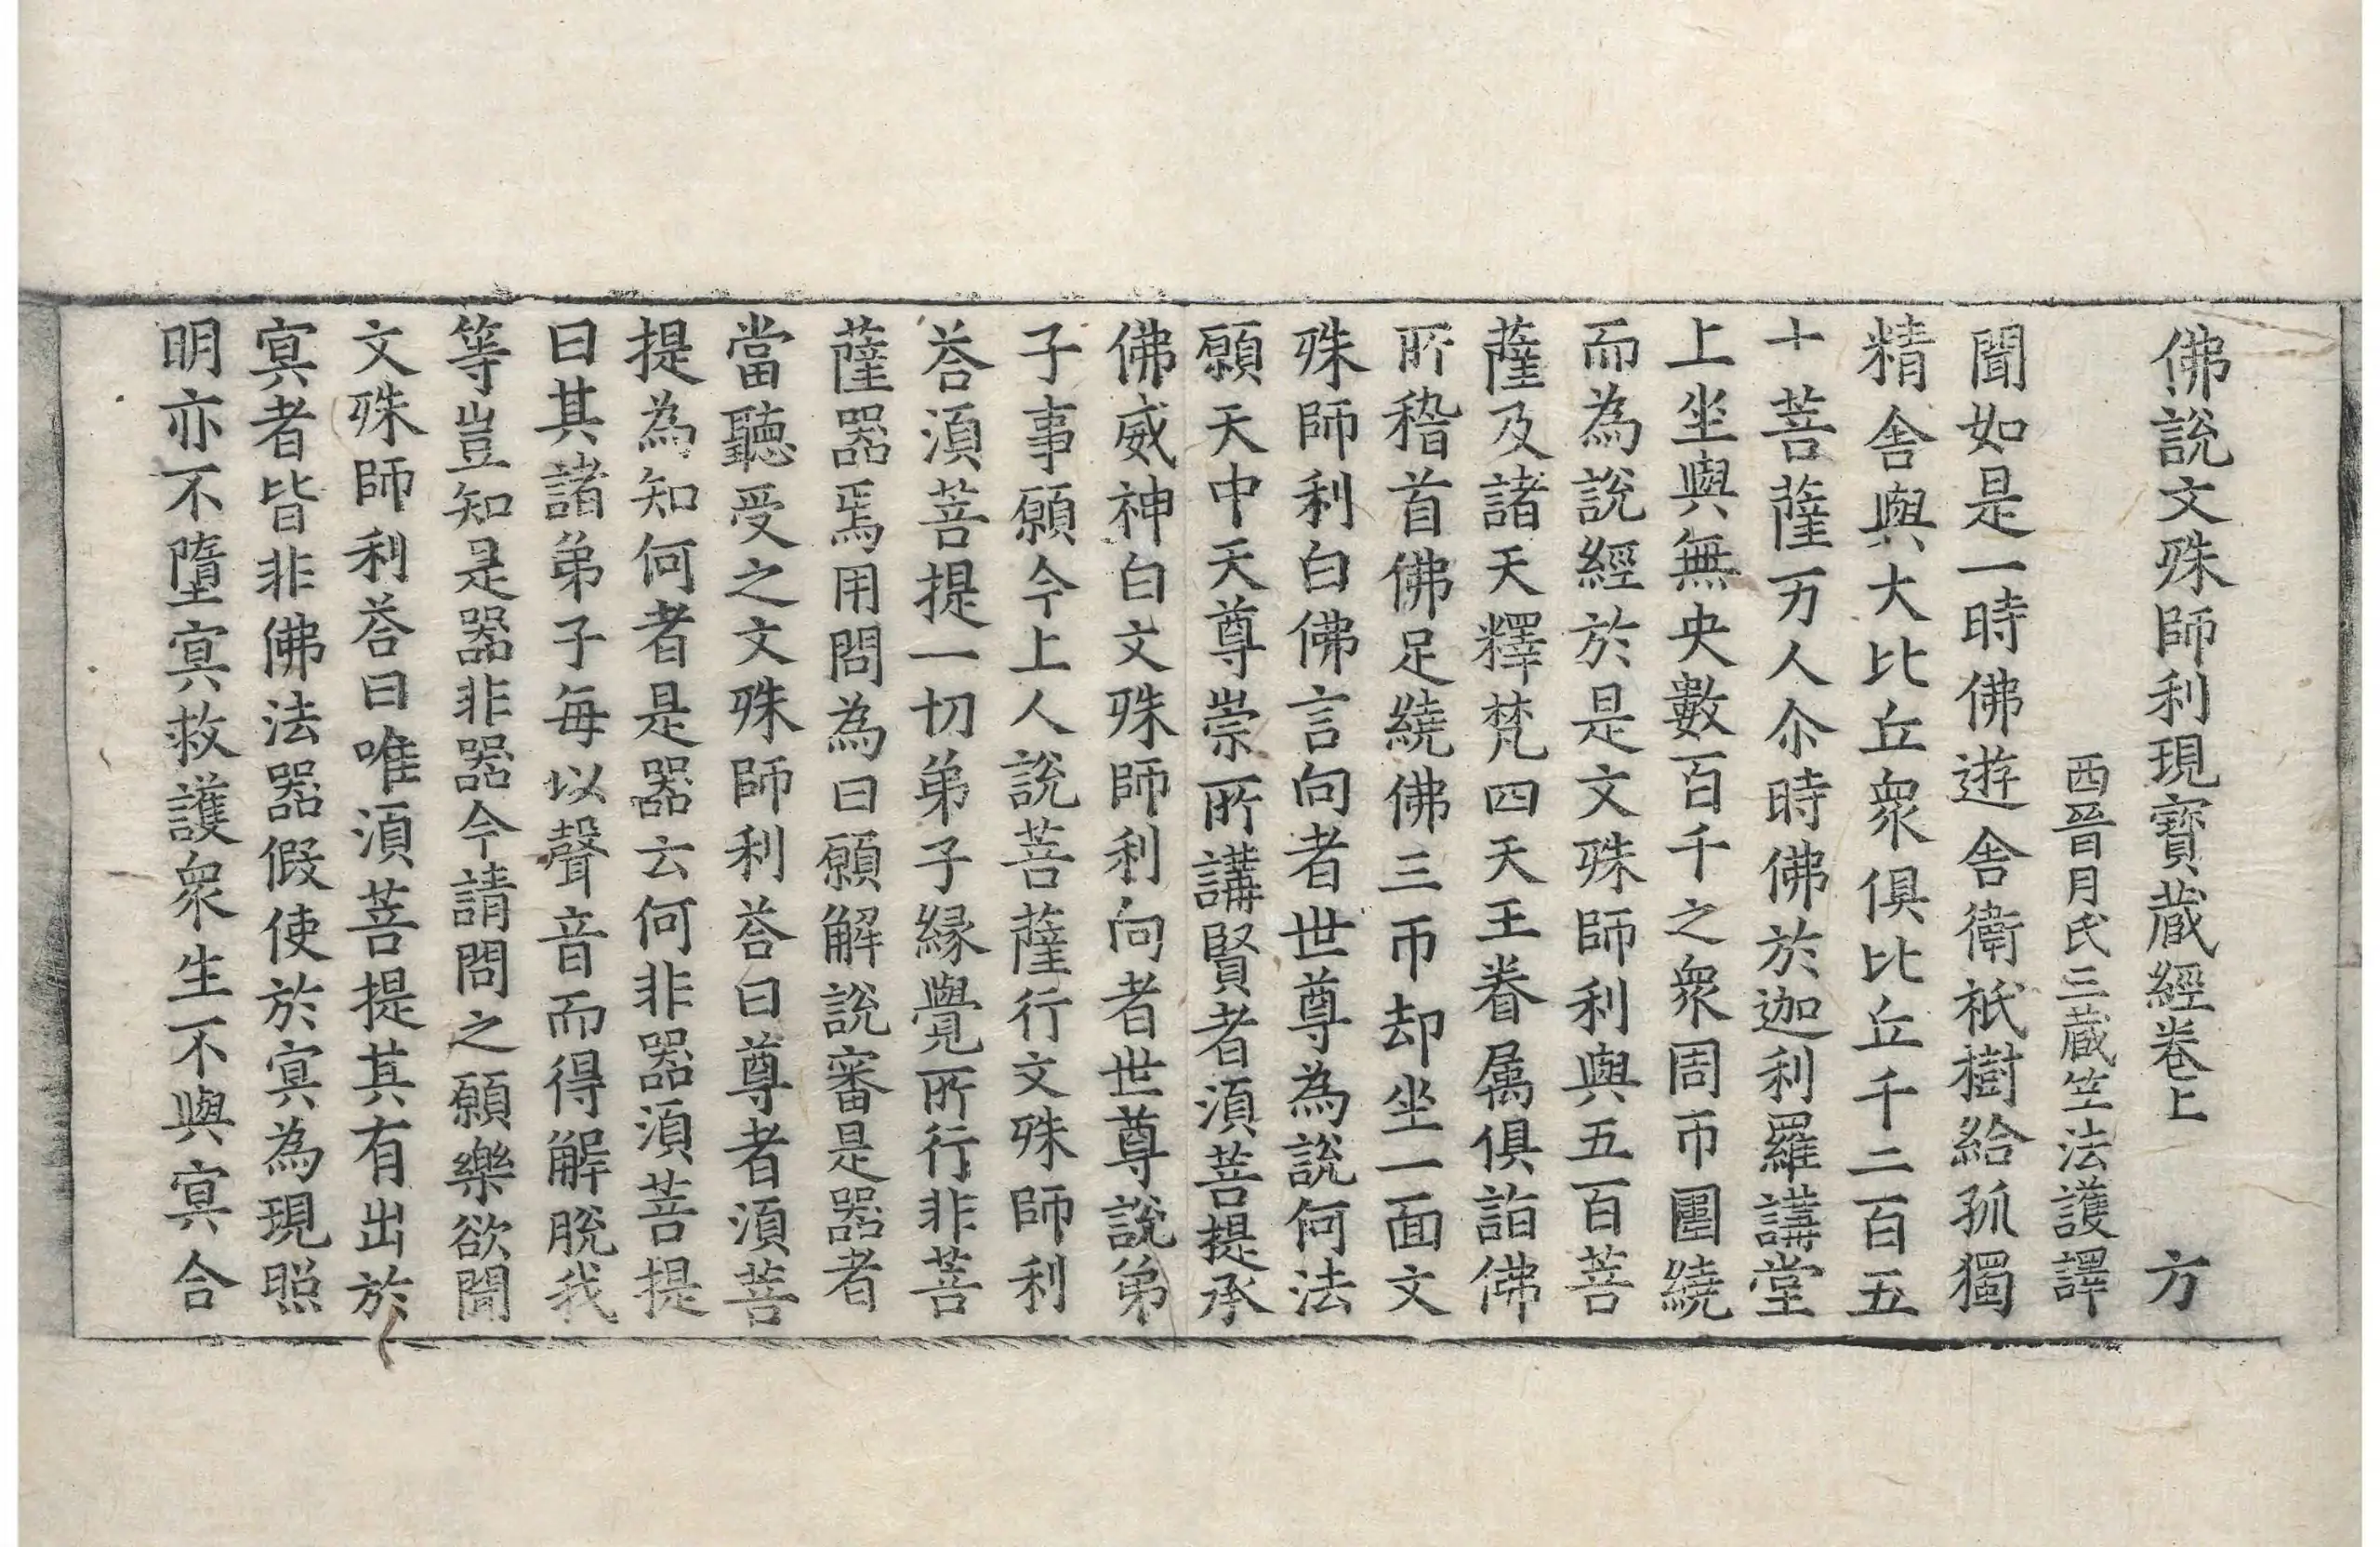 佛說文殊師利現寶蔵經卷上 方
西晉月氏三蔵竺法護譯
聞如是一時佛遊舍衛祇樹給孤獨
精舍與大比丘衆俱比丘千二百五
十菩薩万人尒時佛於迦利羅講堂
上坐與無央數百千之衆周帀圍繞
而為說經於是文殊師利與五百菩
薩及諸天釋梵四天王眷属俱詣佛
所稽首佛足繞佛三帀却坐一面文
殊師利白佛言向者世尊為說何法
願天中天尊崇所講賢者湏菩提承
佛威神白文殊師利向者世尊說弟
子事願今上人說菩薩行文殊師利
荅湏菩提一切弟子緣覺所行非菩
薩器焉用問為曰願解說審是器者
當聽受之文殊師利荅曰尊者湏菩
提為知何者是器云何非器湏菩提
曰其諸弟子每以聲音而得解脫我
等豈知是器非器今請問之願樂欲聞
文殊師利荅曰唯湏菩提其有出於
㝠者皆非佛法器假使於㝠為現照
明亦不墮㝠救護衆生不與㝠合